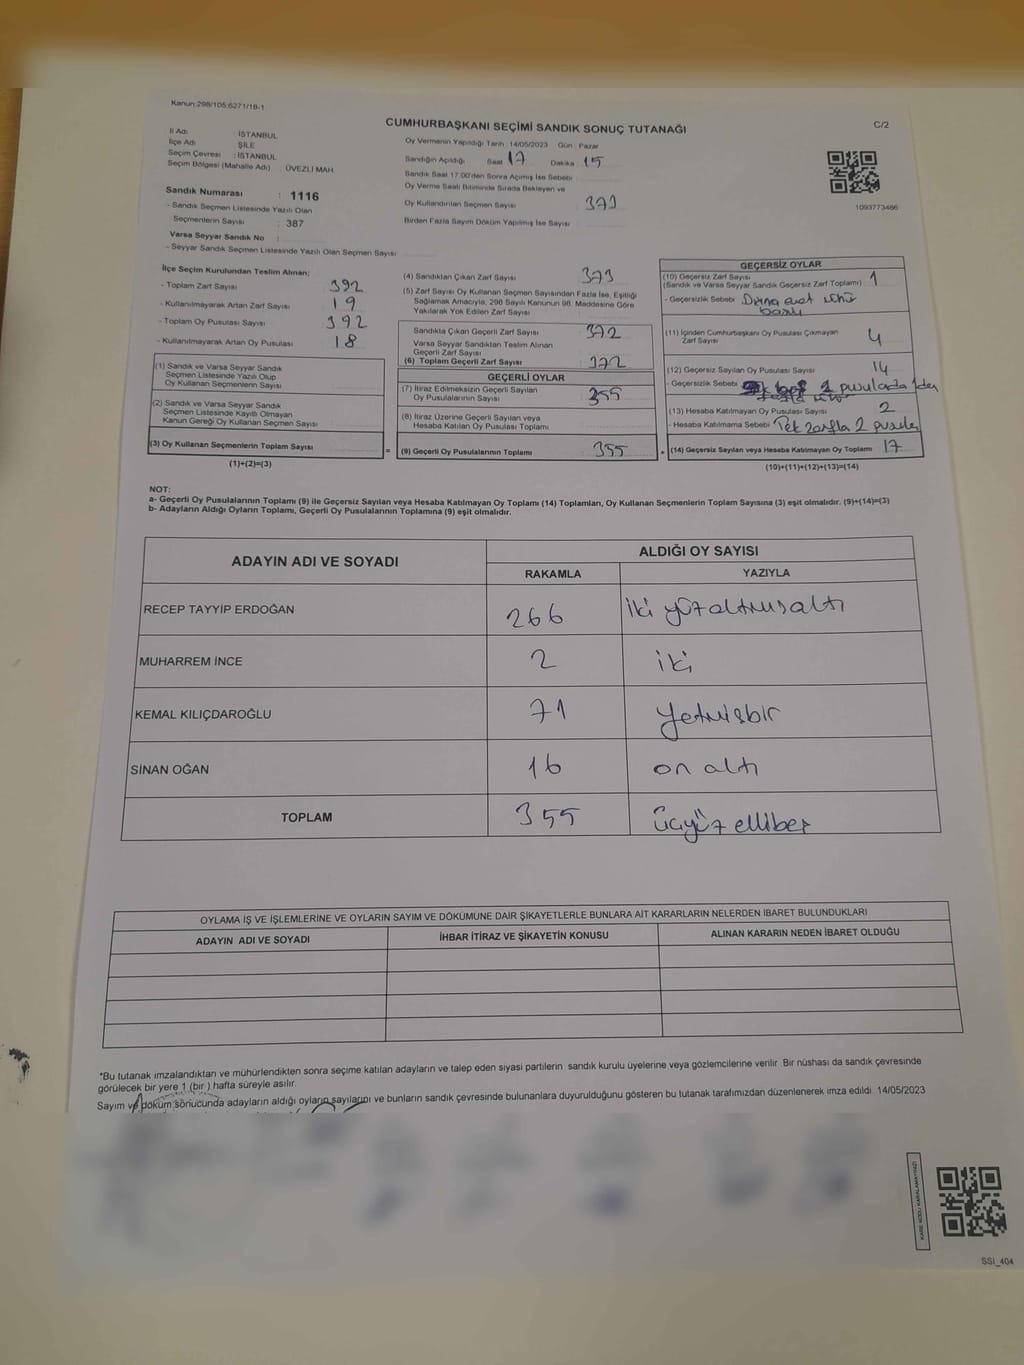 Kanun:298/105;6271/18-1
CUMHURBAŞKANI SEÇİMİ SANDIK SONUÇ TUTANAĞI
C/2
İl Adı : İSTANBUL
İlçe Adı : ŞİLE
Seçim Çevresi : İSTANBUL
Seçim Bölgesi (Mahalle Adı) : ÜVEZLİ MAH.
Sandık Numarası : 1116
- Sandık Seçmen Listesinde Yazılı Olan
Seçmenlerin Sayısı : 387
Varsa Seyyar Sandık No :
- Seyyar Sandık Seçmen Listesinde Yazılı Olan Seçmen Sayısı
Oy Vermenin Yapıldığı Tarih :14/05/2023 Gün : Pazar
Sandığın Açıldığı Saat 17 Dakika 15
Sandık Saat 17:00'den Sonra Açılmış İse Sebebi
Oy Verme Saati Bitiminde Sırada Bekleyen ve
Oy Kullandırılan Seçmen Sayısı 373
Birden Fazla Sayım Döküm Yapılmış İse Sayısı
1093773486
İlçe Seçim Kurulundan Teslim Alınan;
- Toplam Zarf Sayısı 392
- Kullanılmayarak Artan Zarf Sayısı 19
- Toplam Oy Pusulası Sayısı 392
- Kullanılmayarak Artan Oy Pusulası 18
(1) Sandık ve Varsa Seyyar Sandık
Seçmen Listesinde Yazılı Olup
Oy Kullanan Seçmenlerin Sayısı
(2) Sandık ve Varsa Seyyar Sandık
Seçmen Listesinde Kayıtlı Olmayan
Kanun Gereği Oy Kullanan Seçmen Sayısı
(3) Oy Kullanan Seçmenlerin Toplam Sayısı
(1)+(2)=(3)
=
(4) Sandıktan Çıkan Zarf Sayısı 373
(5) Zarf Sayısı Oy Kullanan Seçmen Sayısından Fazla İse, Eşitliği
Sağlamak Amacıyla, 298 Sayılı Kanunun 98. Maddesine Göre
Yakılarak Yok Edilen Zarf Sayısı
Sandıkta Çıkan Geçerli Zarf Sayısı 372
Varsa Seyyar Sandıktan Teslim Alınan
Geçerli Zarf Sayısı
(6) Toplam Geçerli Zarf Sayısı 372
GEÇERLİ OYLAR
(7) İtiraz Edilmeksizin Geçerli Sayılan
Oy Pusulalarının Sayısı 355
(8) İtiraz Üzerine Geçerli Sayılan veya
Hesaba Katılan Oy Pusulası Toplamı
(9) Geçerli Oy Pusulalarının Toplamı 355
+
GEÇERSİZ OYLAR
(10) Geçersiz Zarf Sayısı
(Sandık ve Varsa Seyyar Sandık Geçersiz Zarf Toplamı) 1
- Geçersizlik Sebebi
(11) İçinden Cumhurbaşkanı Oy Pusulası Çıkmayan
Zarf Sayısı 4
(12) Geçersiz Sayılan Oy Pusulası Sayısı 14
- Geçersizlik Sebebi 1 pusulada 1den
(13) Hesaba Katılmayan Oy Pusulası Sayısı 2
- Hesaba Katılmama Sebebi Tek zarfta 2 pusula
(14) Geçersiz Sayılan veya Hesaba Katılmayan Oy Toplamı 17
(10)+(11)+(12)+(13)=(14)
NOT:
a- Geçerli Oy Pusulalarının Toplamı (9) ile Geçersiz Sayılan veya Hesaba Katılmayan Oy Toplamı (14) Toplamları, Oy Kullanan Seçmenlerin Toplam Sayısına (3) eşit olmalıdır. (9)+(14)=(3)
b- Adayların Aldığı Oyların Toplamı, Geçerli Oy Pusulalarının Toplamına (9) eşit olmalıdır.
ADAYIN ADI VE SOYADI
ALDIĞI OY SAYISI
RAKAMLA YAZIYLA
RECEP TAYYİP ERDOĞAN 266 iki yüz altmış altı
MUHARREM İNCE 2 iki
KEMAL KILIÇDAROĞLU 71 Yetmişbir
SİNAN OĞAN 16 on altı
TOPLAM 355 üçyüz ellibeş
OYLAMA İŞ VE İŞLEMLERİNE VE OYLARIN SAYIM VE DÖKÜMÜNE DAİR ŞİKAYETLERLE BUNLARA AİT KARARLARIN NELERDEN İBARET BULUNDUKLARI
ADAYIN ADI VE SOYADI İHBAR İTİRAZ VE ŞİKAYETİN KONUSU ALINAN KARARIN NEDEN İBARET OLDUĞU
*Bu tutanak imzalandıktan ve mühürlendikten sonra seçime katılan adayların ve talep eden siyasi partilerin sandık kurulu üyelerine veya gözlemcilerine verilir. Bir nüshası da sandık çevresinde
görülecek bir yere 1 (bir ) hafta süreyle asılır.
Sayım ve döküm sonucunda adayların aldığı oyların sayılarını ve bunların sandık çevresinde bulunanlara duyurulduğunu gösteren bu tutanak tarafımızdan düzenlenerek imza edildi. 14/05/2023
KARE KODU KARALAMAYINIZ!
SSİ_404